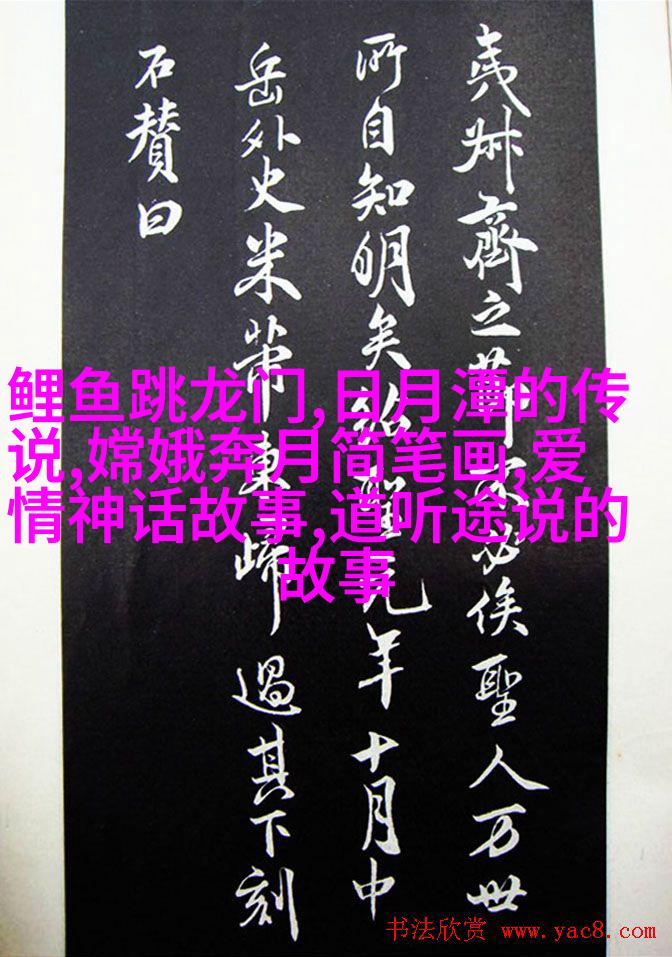 夷叔齊之節必俟聖人万世
所自知明矣紹聖元年十月中
岳外史米芾東歸過其下刻
石賛曰
鲤鱼跳龙门,日月潭的传
说,嫦娥奔月简笔画,爱
情神话故事,道听途说的
故事
书法欣赏 www.yac8.com